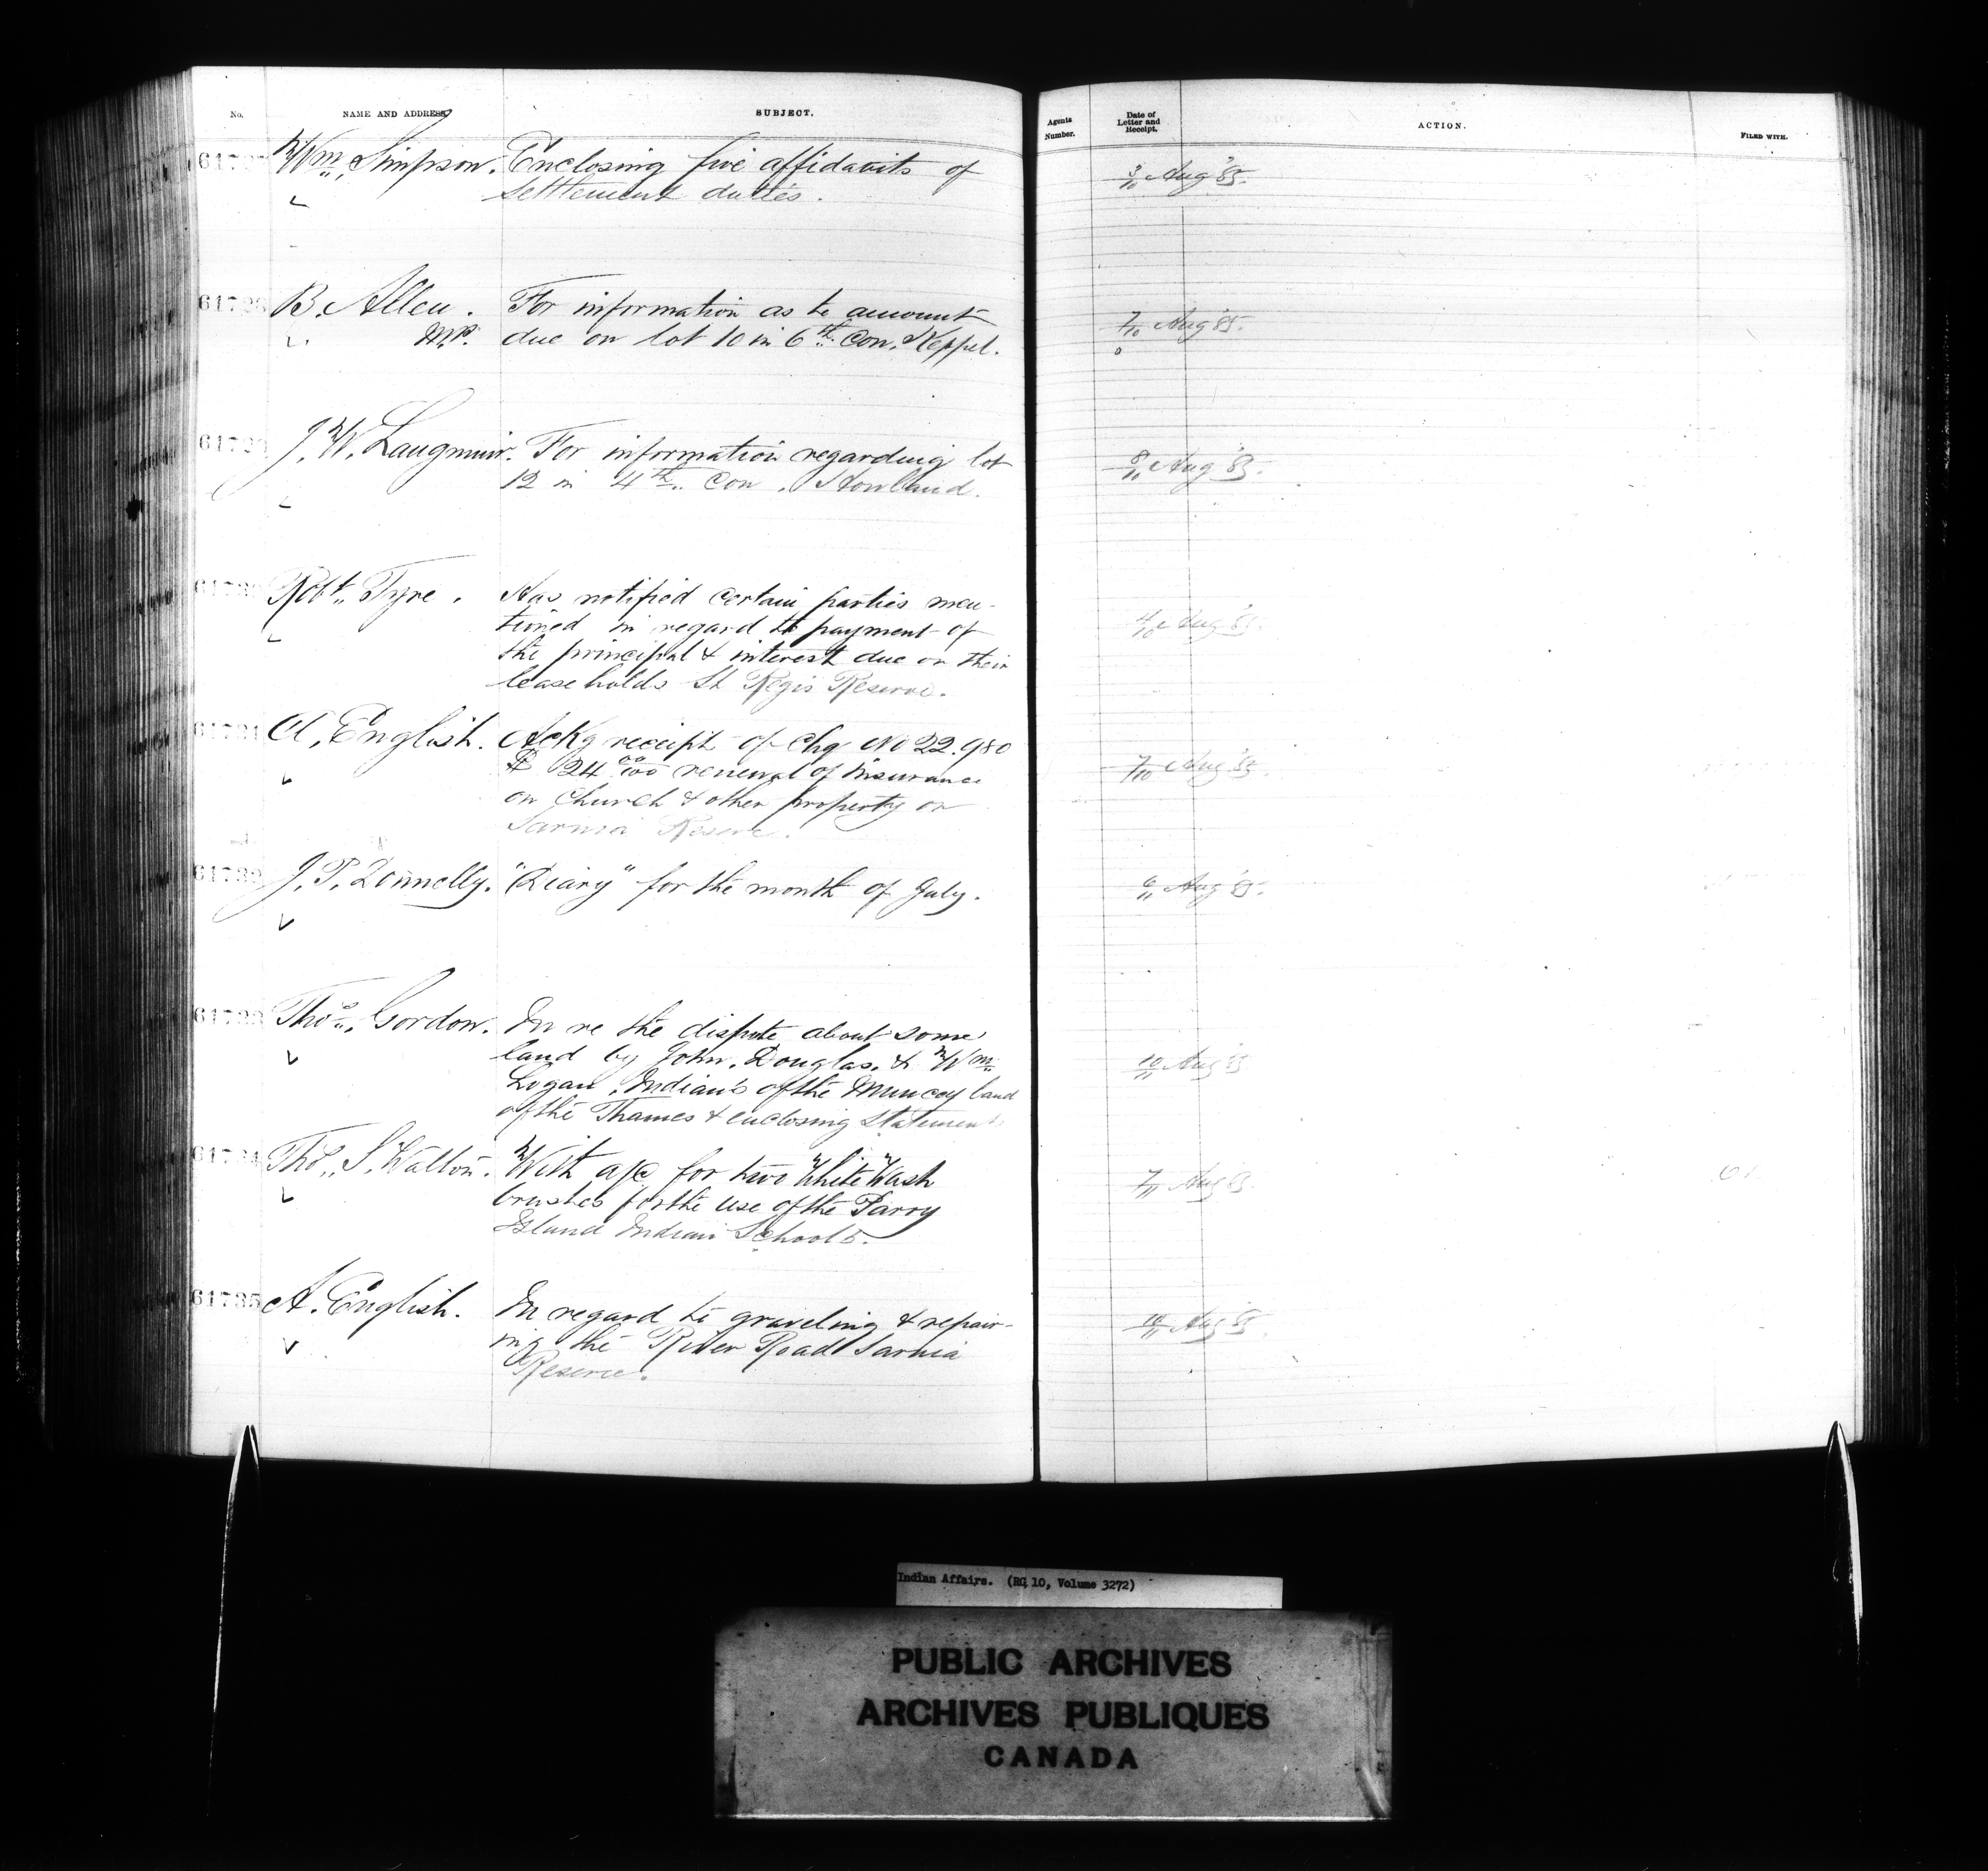 No. NAME AND ADDRESS. SUBJECT. Agents Number. Date of Letter and Receipt. ACTION. FILED WITH.
Wm. Simpson. Enclosing five affidavits of 3/10 Aug '85.
settlement duties.
B. Allen. For information as to amount 7/10 Aug '85.
M.P. due on lot 10 in 6th. Con. Keppel.
J. W. Langmuir. For information regarding lot 8/10 Aug '85.
12 in 4th. Con. Howland.
Robt. Tyre. Has notified certain parties men-
tioned in regard to payment of 4/10 Aug '85.
the principal & interest due on their
leaseholds St Regis Reserve.
61731 A. English. Ackg receipt of Chq No 22.980
$ 24 00/100 renewal of insurance 7/10 Aug '85.
on Church & other property on
Sarnia Reserve.
61732 J. P. Donnelly. "Diary" for the month of July. 6/11 Aug '85.
61733 Thos. Gordon. In re the dispute about some
land by John. Douglas. & Wm. 10/11 Aug '85
Logan. Indian's of the Muncey band
of the Thames & enclosing statement
61734 Thos. S. Walton. With a/c for two White Wash 7/11 Aug 85.
brushes for the use of the Parry
Island Indian Schools.
61735 A. English. In regard to graveling & repair- 10/11 Aug 85.
ing the River Road Sarnia
Reserve.
Indian Affairs. (RG 10, Volume 3272)
PUBLIC ARCHIVES
ARCHIVES PUBLIQUES
CANADA